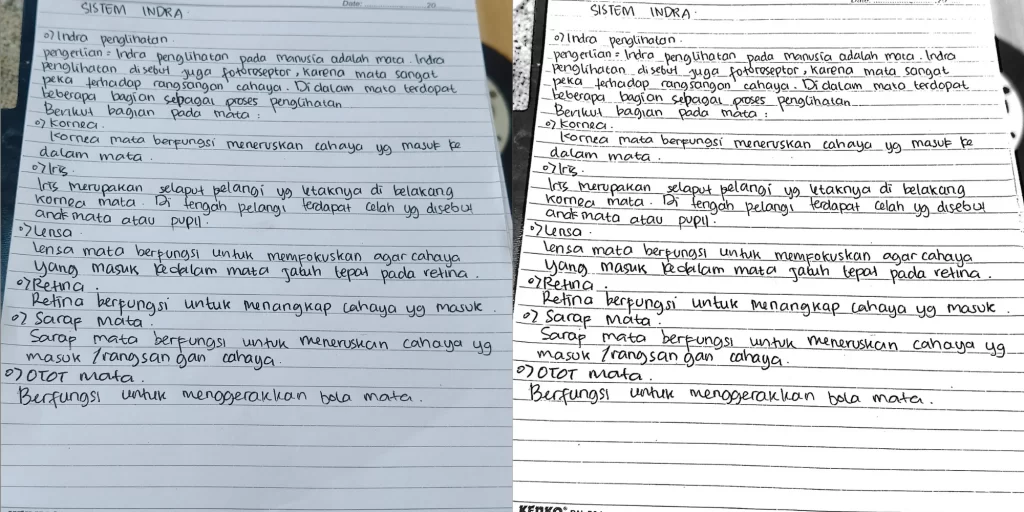 SISTEM INDRA.
Date: 20
o) Indra penglihatan.
pengertian = Indra penglihatan pada manusia adalah mata. Indra
penglihatan disebut juga fotoroseptor, karena mata sangat
peka terhadap rangsangan cahaya. Di dalam mata terdapat
beberapa bagian sebagai proses penglihatan
Berikut bagian pada mata :
o) Kornea.
Kornea mata berfungsi meneruskan cahaya yg masuk ke
dalam mata.
o) Iris.
Iris merupakan selaput pelangi yg letaknya di belakang
kornea mata. Di tengah pelangi terdapat celah yg disebut
anak mata atau pupil.
o) Lensa.
Lensa mata berfungsi untuk memfokuskan agar cahaya
yang masuk kedalam mata jatuh tepat pada retina.
o) Retina.
Retina berfungsi untuk menangkap cahaya yg masuk.
o) Saraf Mata.
Saraf mata berfungsi untuk meneruskan cahaya yg
masuk / rangsangan cahaya.
o) OTOT mata.
Berfungsi untuk menggerakkan bola mata.
SISTEM INDRA.
o) Indra penglihatan.
pengertian = Indra penglihatan pada manusia adalah mata. Indra
penglihatan disebut juga fotoroseptor, karena mata sangat
peka terhadap rangsangan cahaya. Di dalam mata terdapat
beberapa bagian sebagai proses penglihatan
Berikut bagian pada mata :
o) Kornea.
Kornea mata berfungsi meneruskan cahaya yg masuk ke
dalam mata.
o) Iris.
Iris merupakan selaput pelangi yg letaknya di belakang
kornea mata. Di tengah pelangi terdapat celah yg disebut
anak mata atau pupil.
o) Lensa.
Lensa mata berfungsi untuk memfokuskan agar cahaya
yang masuk kedalam mata jatuh tepat pada retina.
o) Retina.
Retina berfungsi untuk menangkap cahaya yg masuk.
o) Saraf Mata.
Saraf mata berfungsi untuk meneruskan cahaya yg
masuk / rangsangan cahaya.
o) OTOT mata.
Berfungsi untuk menggerakkan bola mata.
KENKO